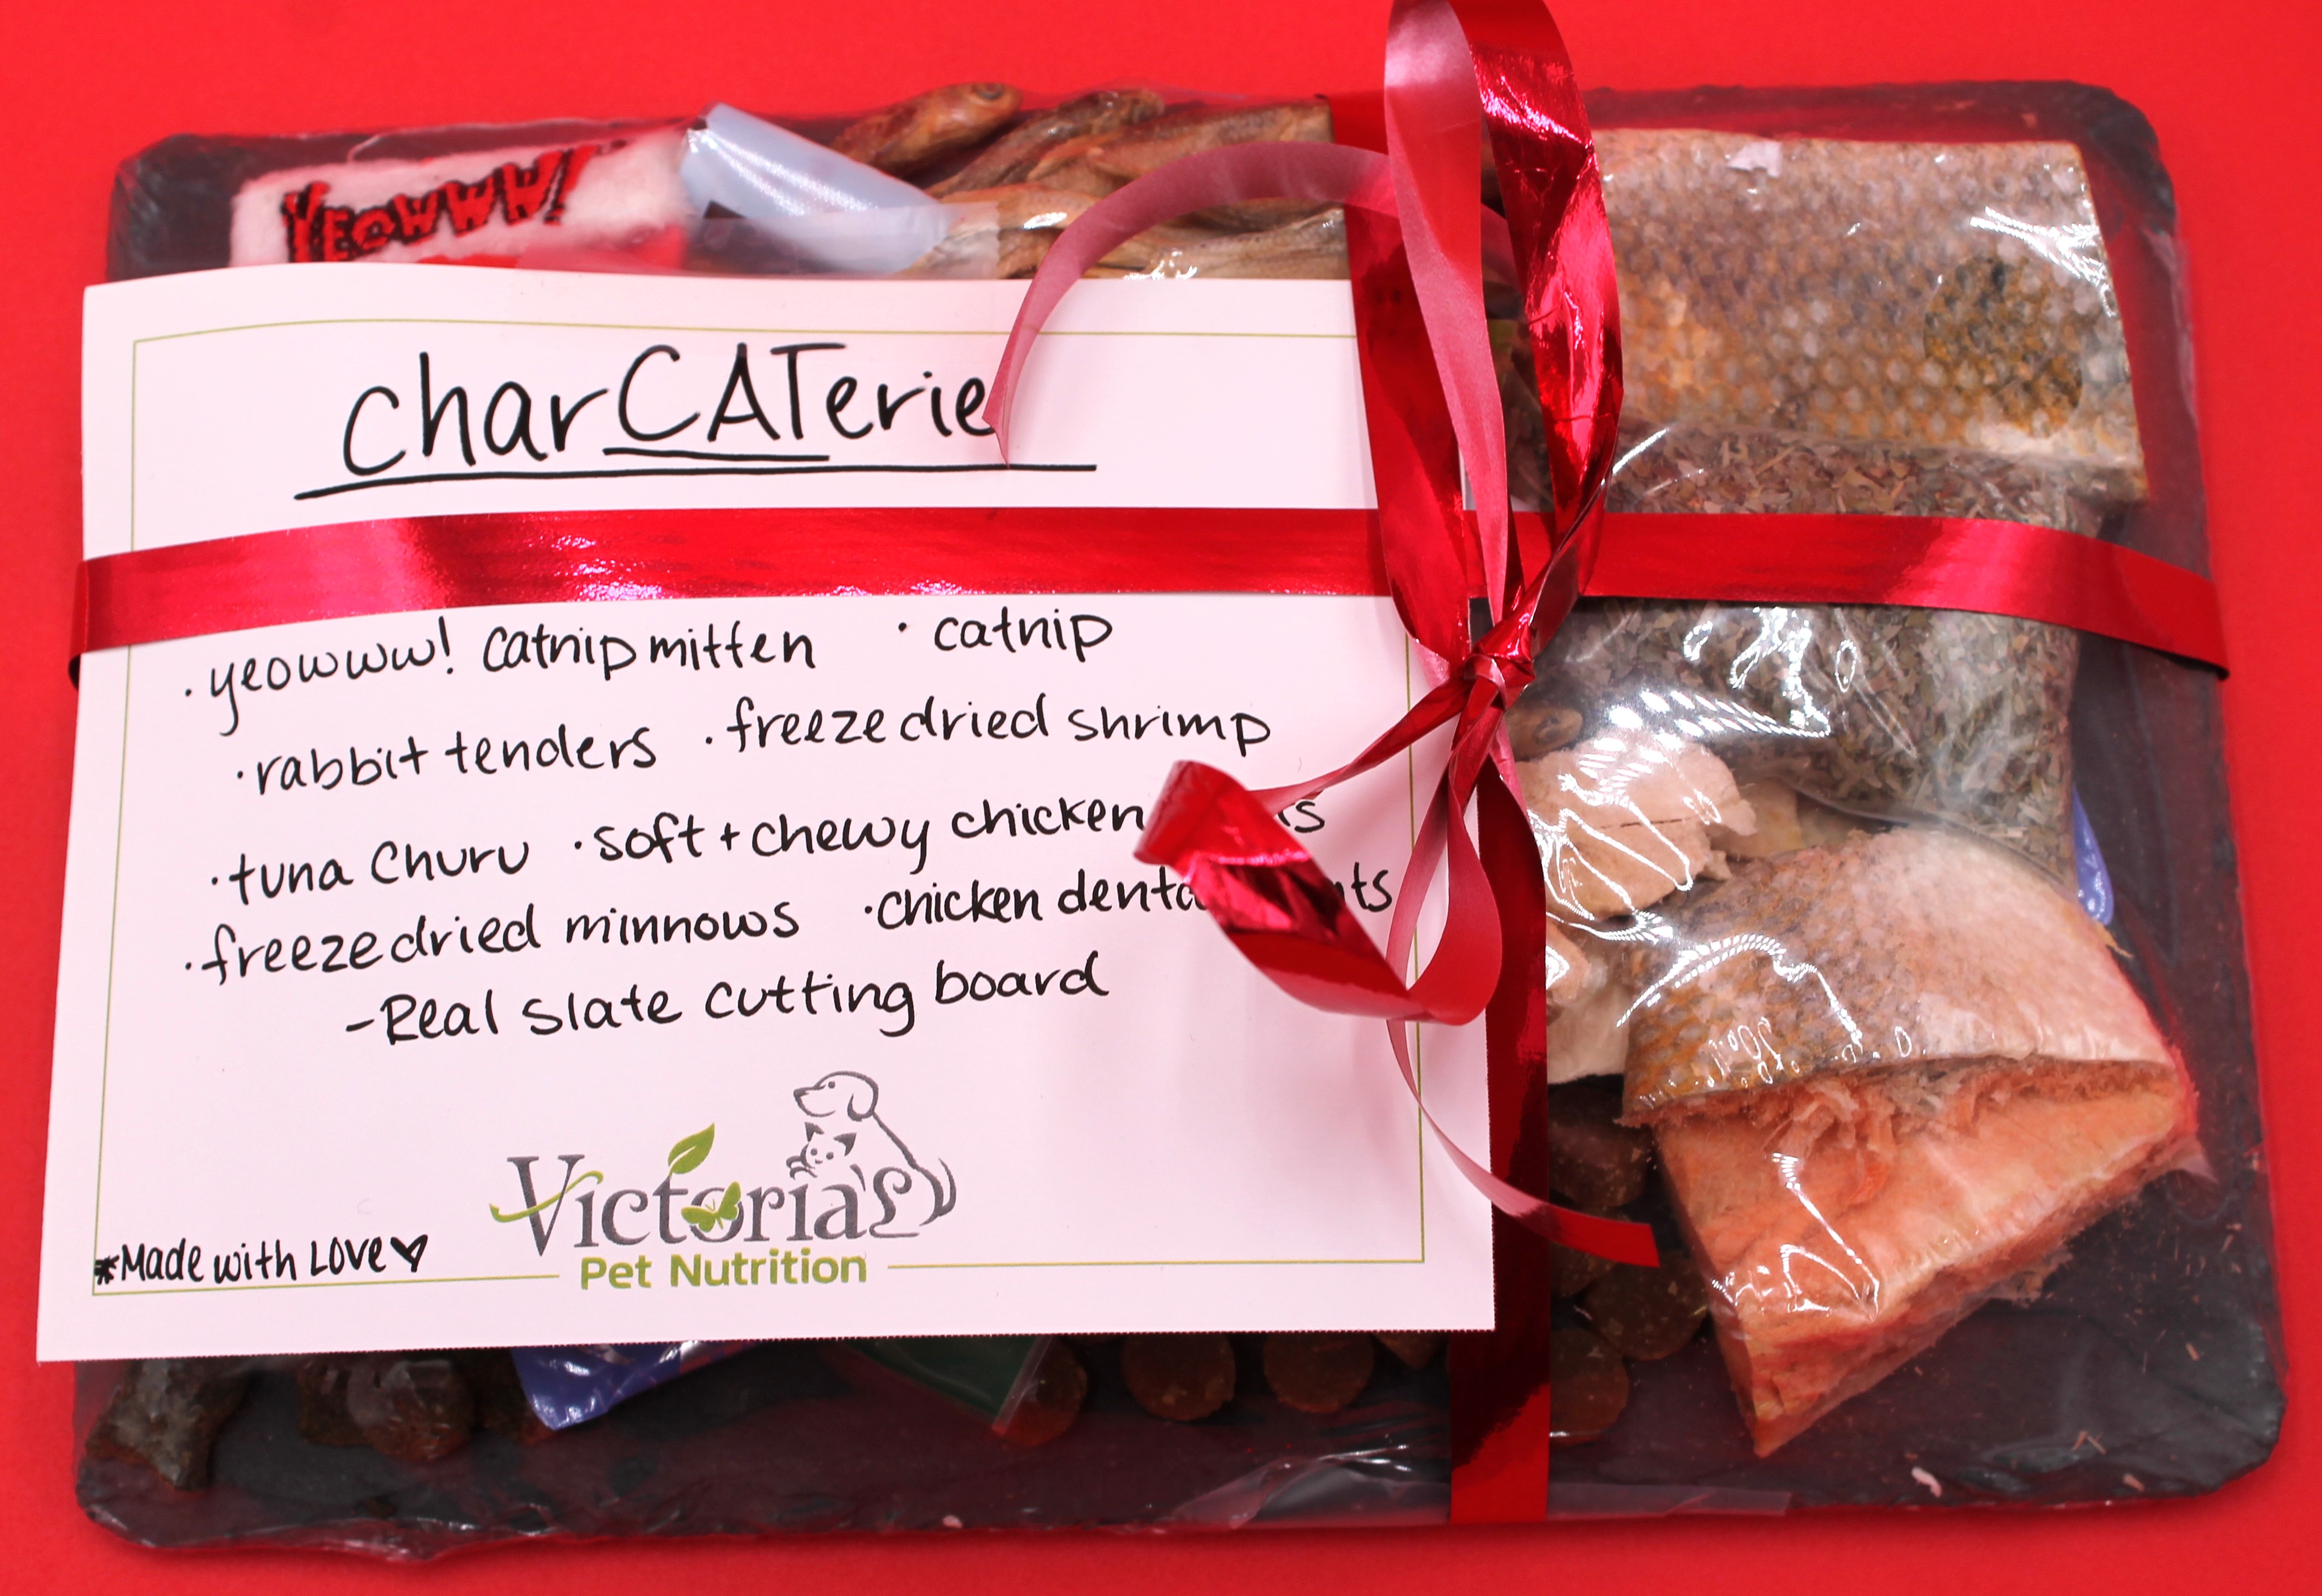 YEOWWW!
charCATerie
· yeowww! catnip mitten · catnip
· rabbit tenders · freeze dried shrimp
· tuna Churu · soft + chewy chicken
· freeze dried minnows · chicken
- Real slate cutting board
Victoria's
Pet Nutrition
*Made with Love♥